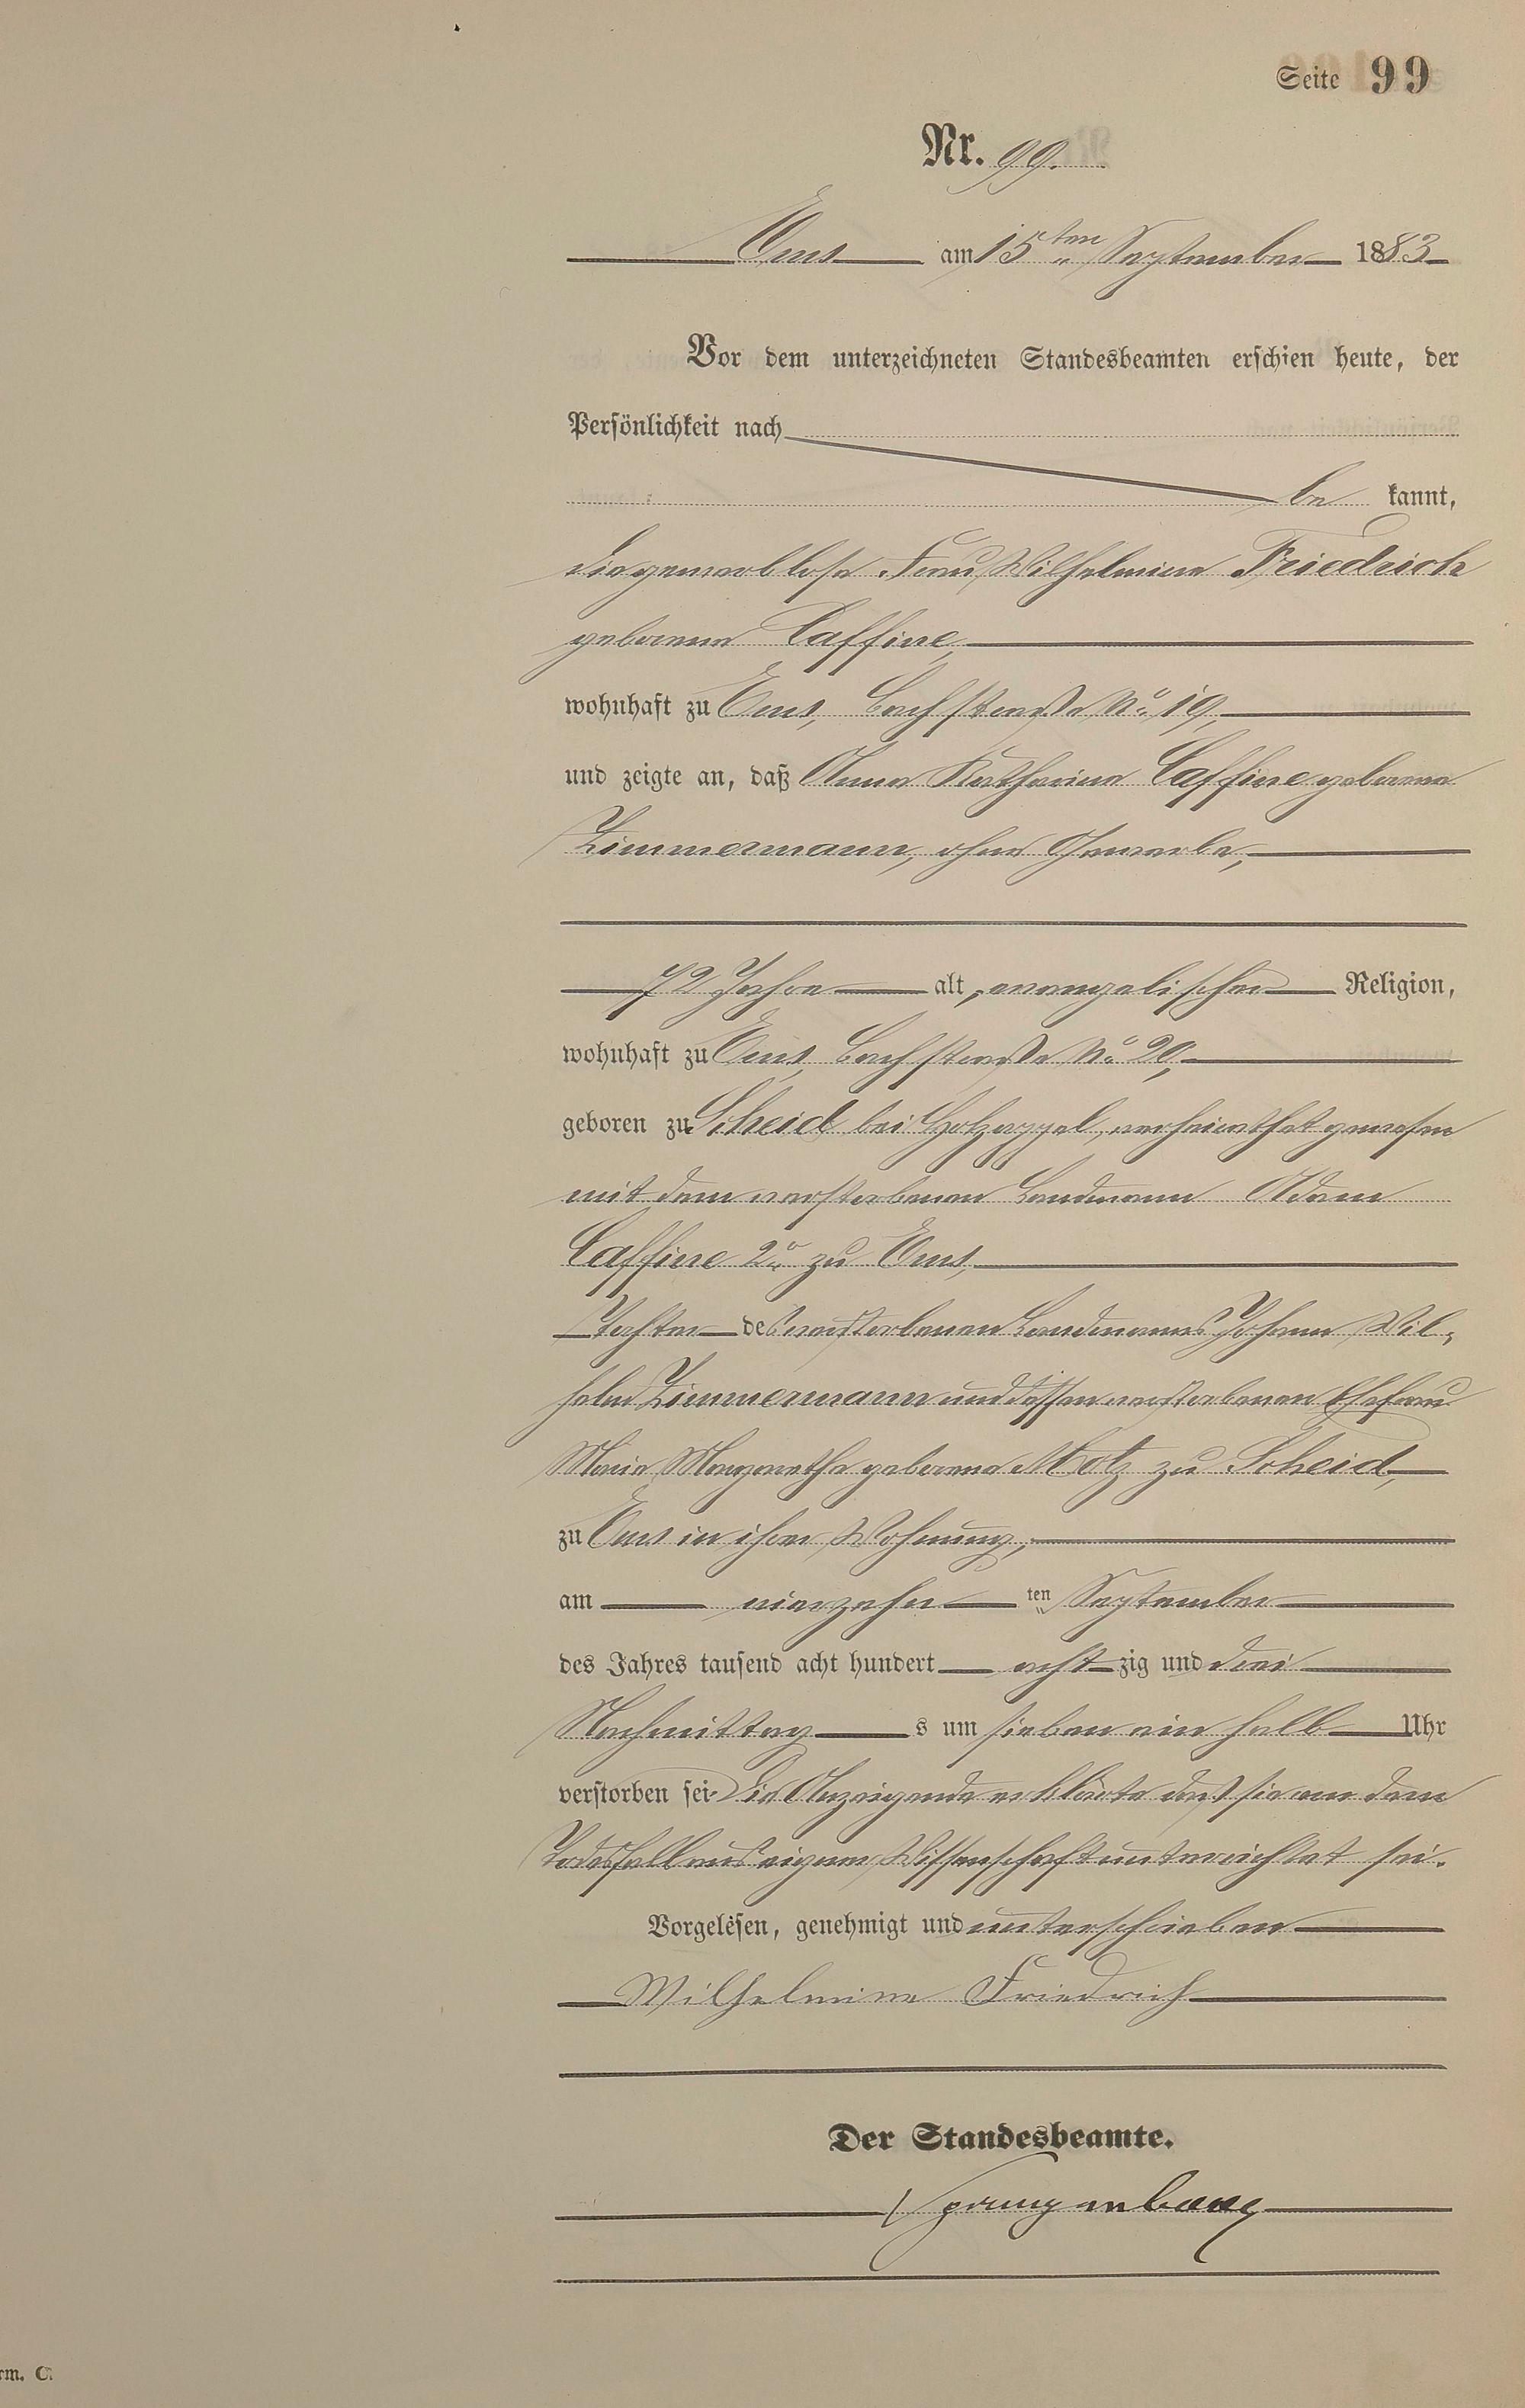 Seite 99
Nr. 99.
Ems am 15ten September 1883
Vor dem unterzeichneten Standesbeamten erschien heute, der
Persönlichkeit nach
be kannt,
die gewerblose Frau Wilhelmine Friedrich
geborene Caffine,
wohnhaft zu Ems, Bachstraße No 19,
und zeigte an, daß Anna Katharina Caffine geborene
Zimmermann, ohne Gewerbe,
72 Jahre alt, evangelischer Religion,
wohnhaft zu Ems, Bachstraße No 20,
geboren zu Scheid bei Holzappel, verheirathet gewesen
mit dem verstorbenen Landmann Adam
Caffine 2r zu Ems,
Tochter des verstorbenen Landmanns Johann Wil-
helm Zimmermann und dessen verstorbenen Ehefrau
Maria Margaretha geborene Motz zu Scheid,
zu Ems in ihrer Wohnung,
am vierzehn ten September
des Jahres tausend acht hundert acht zig und drei
Nachmittag s um sieben ein halb Uhr
verstorben sei. Die Anzeigende erklärte daß sie von dem
Todesfall aus eigener Wissenschaft unterrichtet sei.
Vorgelesen, genehmigt und unterschrieben
Wilhelmine Friedrich
Der Standesbeamte.
Spangenberg
rm. C.